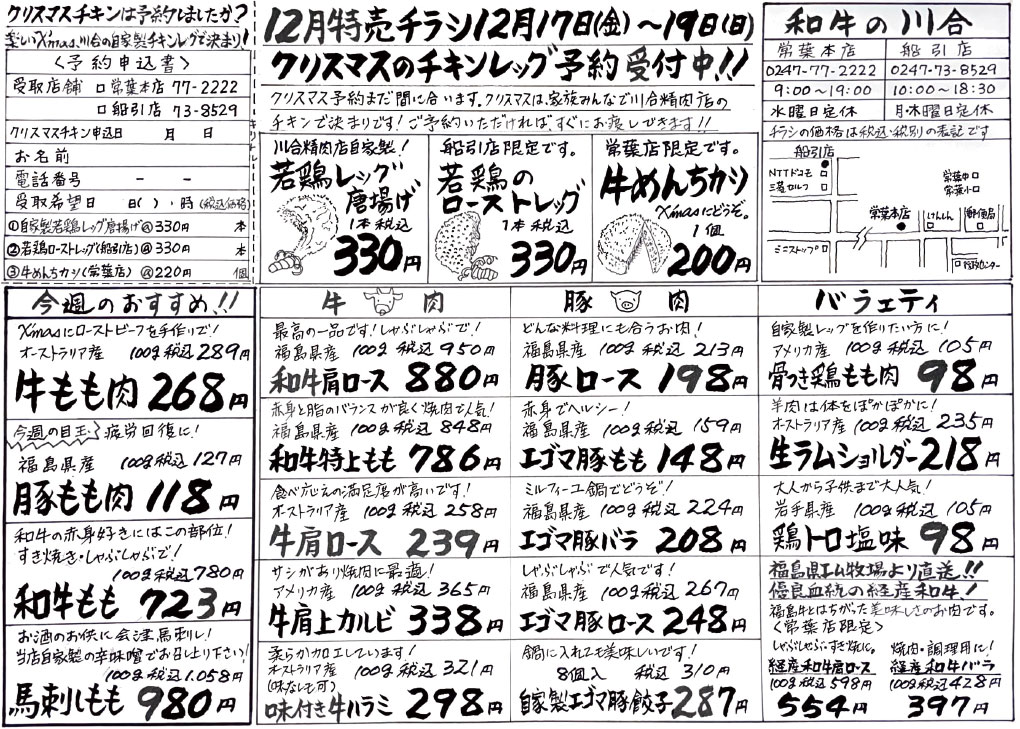 クリスマスチキンは予約しましたか?
楽しいX'mas、川合の自家製チキンレッグで決まり!
〈予約申込書〉
受取店舗 □常葉本店 77-2222
□船引店 73-8529
クリスマスチキン申込日 月 日
お名前
電話番号 - -
受取希望日 日( )、時(税込価格)
①自家製若鶏レッグ唐揚げ@330円 本
②若鶏ローストレッグ(船引店)@330円 本
③牛めんちカツ(常葉店)@220円 個
キリトリ
12月特売チラシ12月17日(金)~19日(日)
クリスマスのチキンレッグ予約受付中!!
クリスマス予約まだ間に合います。クリスマスは、家族みんなで川合精肉店の
チキンで決まりです!ご予約いただければ、すぐにお渡しできます!!
川合精肉店自家製!
若鶏レッグ
唐揚げ
1本税込
330円
船引店限定です。
若鶏の
ローストレッグ
1本税込
330円
常葉店限定です。
牛めんちカツ
X'masにどうぞ。
1個
200円
和牛の川合
常葉本店 船引店
0247-77-2222 0247-73-8529
9:00~19:00 10:00~18:30
水曜日定休 月・木曜日定休
チラシの価格は税込・税別の表記です
船引店
NTTドコモ
三菱セルフ
ミニストップ
常葉中
常葉小
常葉本店
けんしん
郵便局
行政センター
今週のおすすめ!!
X'masにローストビーフを手作りで!
オーストラリア産 100g税込289円
牛もも肉 268円
今週の目玉 疲労回復に!
福島県産 100g税込127円
豚もも肉 118円
和牛の赤身好きにはこの部位!
すき焼き・しゃぶしゃぶで!
100g税込780円
和牛もも 723円
お酒のお供に会津馬刺し!
当店自家製の辛味噌でお召し上り下さい!
100g税込1.058円
馬刺しもも 980円
牛肉
最高の一品です!しゃぶしゃぶで!
福島県産 100g税込950円
和牛肩ロース 880円
赤身と脂のバランスが良く焼肉で人気!
福島県産 100g税込848円
和牛特上もも 786円
食べ応えの満足感が高いです!
オーストラリア産 100g税込258円
牛肩ロース 239円
サシがあり焼肉に最適!
アメリカ産 100g税込365円
牛肩上カルビ 338円
柔らか加工しています!
オーストラリア産 100g税込321円
(味なしも可)
味付き牛ハラミ 298円
豚肉
どんな料理にも合うお肉!
福島県産 100g税込213円
豚ロース 198円
赤身でヘルシー!
福島県産 100g税込159円
エゴマ豚もも 148円
ミルフィーユ鍋でどうぞ!
福島県産 100g税込224円
エゴマ豚バラ 208円
しゃぶしゃぶで人気です!
福島県産 100g税込267円
エゴマ豚ロース 248円
鍋に入れても美味しいです!
8個入 税込310円
自家製エゴマ豚餃子287円
バラエティ
自家製レッグを作りたい方に!
アメリカ産 100g税込105円
骨つき鶏もも肉 98円
羊肉は体をぽかぽかに!
オーストラリア産 100g税込235円
生ラムショルダー218円
大人から子供まで大人気!
岩手県産 100g税込105円
鶏トロ塩味 98円
福島県エム牧場より直送!!
優良血統の経産和牛!
福島牛とはちがった美味しさのお肉です。
〈常葉店限定〉
しゃぶしゃぶ・すき焼に。
経産和牛肩ロース
100g税込598円
554円
焼肉・調理用に!
経産和牛バラ
100g税込428円
397円